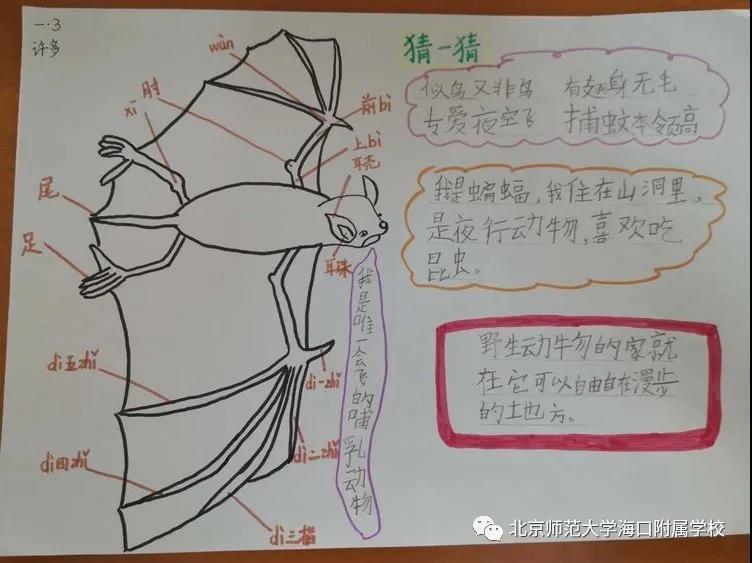 一·3
许多
猜一猜
似鸟又非鸟 有翅身无毛
专爱夜空飞 捕蚊本领高
我是蝙蝠,我住在山洞里,
是夜行动物,喜欢吃
昆虫。
野生动物的家就
在它可以自由自在漫步
的土地方。
我是唯一会飞的哺乳动物
wàn
肘
xī
前bì
上bì
耳壳
尾
足
耳珠
di五zhǐ
di一zhǐ
di四zhǐ
di二zhǐ
di三指
北京师范大学海口附属学校